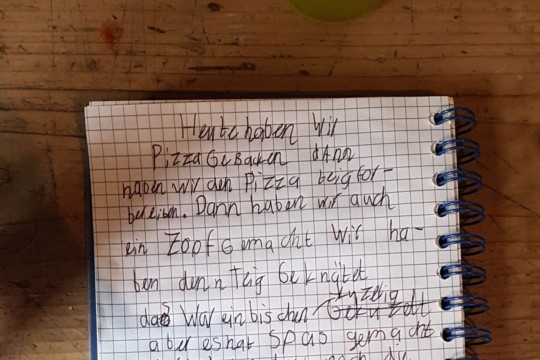 Heute haben Wir
PizzaGeBacken dAnn
haben wir den Pizza teig for-
bereiten. Dann haben wir auch
ein Zopf Gemacht Wir ha-
ben denn Teig Geknätet
das War ein bis chen
aber es hat SPas gemacht